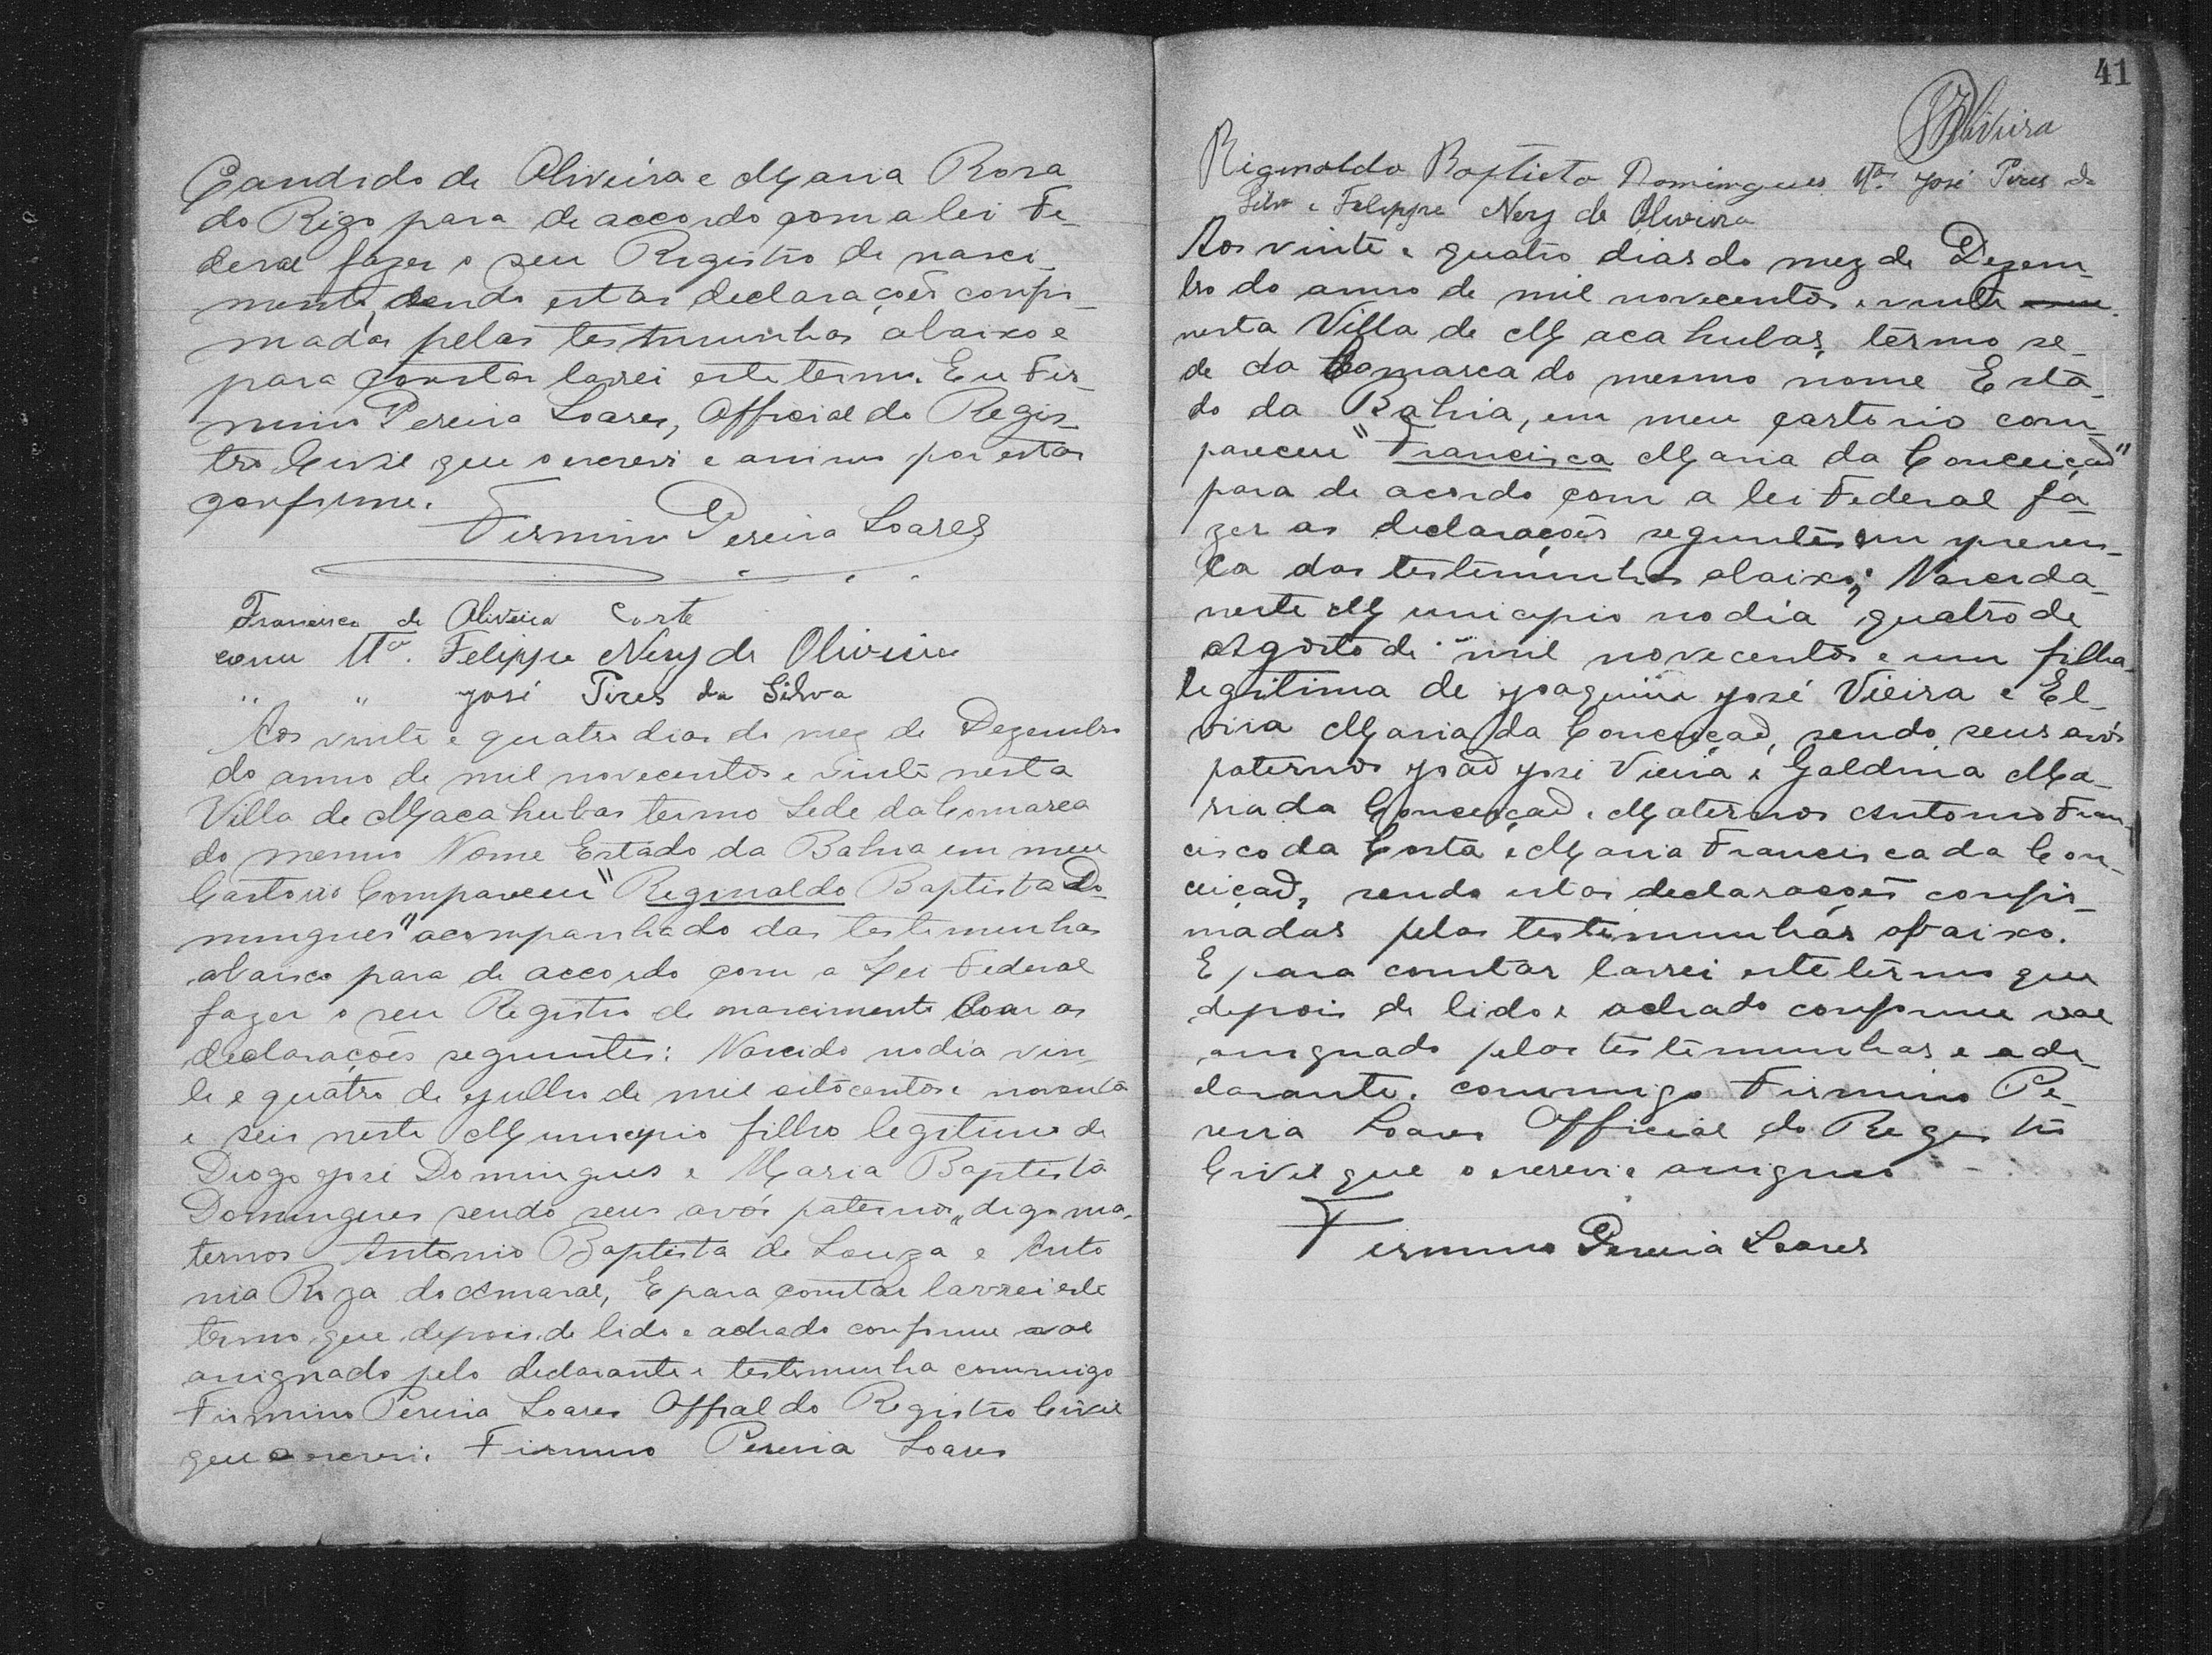 Candido de Oliveira e Maria Rosa
do Rigo para de accordo com a lei Fe-
deral fazer o seu Registro de nasci-
mento, sendo estas declarações confir-
madas pelas testimunhas abaixo e
para constar lavrei este termo. Eu Fir-
mino Pereira Soares, Official do Regis-
tro Civil que o escrevi e assino por estar
conforme.
Firmino Pereira Soares
Francisco de Oliveira
como Tta. Felippe Nery de Oliveira
" " José Pires da Silva
Aos vinte e quatro dias do mez de Dezembro
do anno de mil novecentos e vinte nesta
Villa de Macahubas termo Sede da Comarca
do mesmo Nome Estado da Bahia em meu
Cartorio Compareceu "Reginaldo Baptista Do-
mingues" acompanhado das testimunhas
abaixo para de accordo com a Lei Federal
fazer o seu Registro de nascimento com as
declarações seguintes: Nascido no dia vin-
te e quatro de Julho de mil oitocentos e noventa
e seis neste Municipio filho legitimo de
Diogo José Domingues e Maria Baptista
Domingues sendo seus avós paternos, digo ma-
ternos Antonio Baptista de Souza e Anto
nia Roza do Amaral, E para constar lavrei este
termo que depois de lido e achado conforme vae
assignado pelo declarante e testimunha commigo
Firmino Pereira Soares Offial do Registro Civil
que o escrevi. Firmino Pereira Soares
41
Oliveira
Riginaldo Baptista Domingues Tta. José Pires da
Silva e Felippe Nery de Oliveira
Aos vinte e quatro dias do mez de Dezem-
bro do anno de mil novecentos e vinte
nesta Villa de Macahubas, termo se-
de da Comarca do mesmo nome Esta-
do da Bahia, em meu cartorio com-
pareceu "Francisca Maria da Conceição"
para de acordo com a lei Federal fa-
zer as declarações seguintes em presen-
ça das testimunhas abaixo; Nascida
neste Municipio no dia quatro de
Agosto de mil novecentos e um filha
legitima de Joaquim José Vieira e El-
vira Maria da Conceição, sendo seus avós
paternos João José Vieira e Galdina Ma-
ria da Conceição e Maternos Antonio Fran-
cisco da Costa e Maria Francisca da Con-
ceição, sendo estas declarações confir-
madas pelas testimunhas abaixo.
E para constar lavrei este termo que
depois de lido e achado conforme vae
assignado pelas testimunhas e a de-
clarante. commigo Firmino Pe-
reira Soares Official do Registro
Civil que o escrevi e assigno
Firmino Pereira Soares